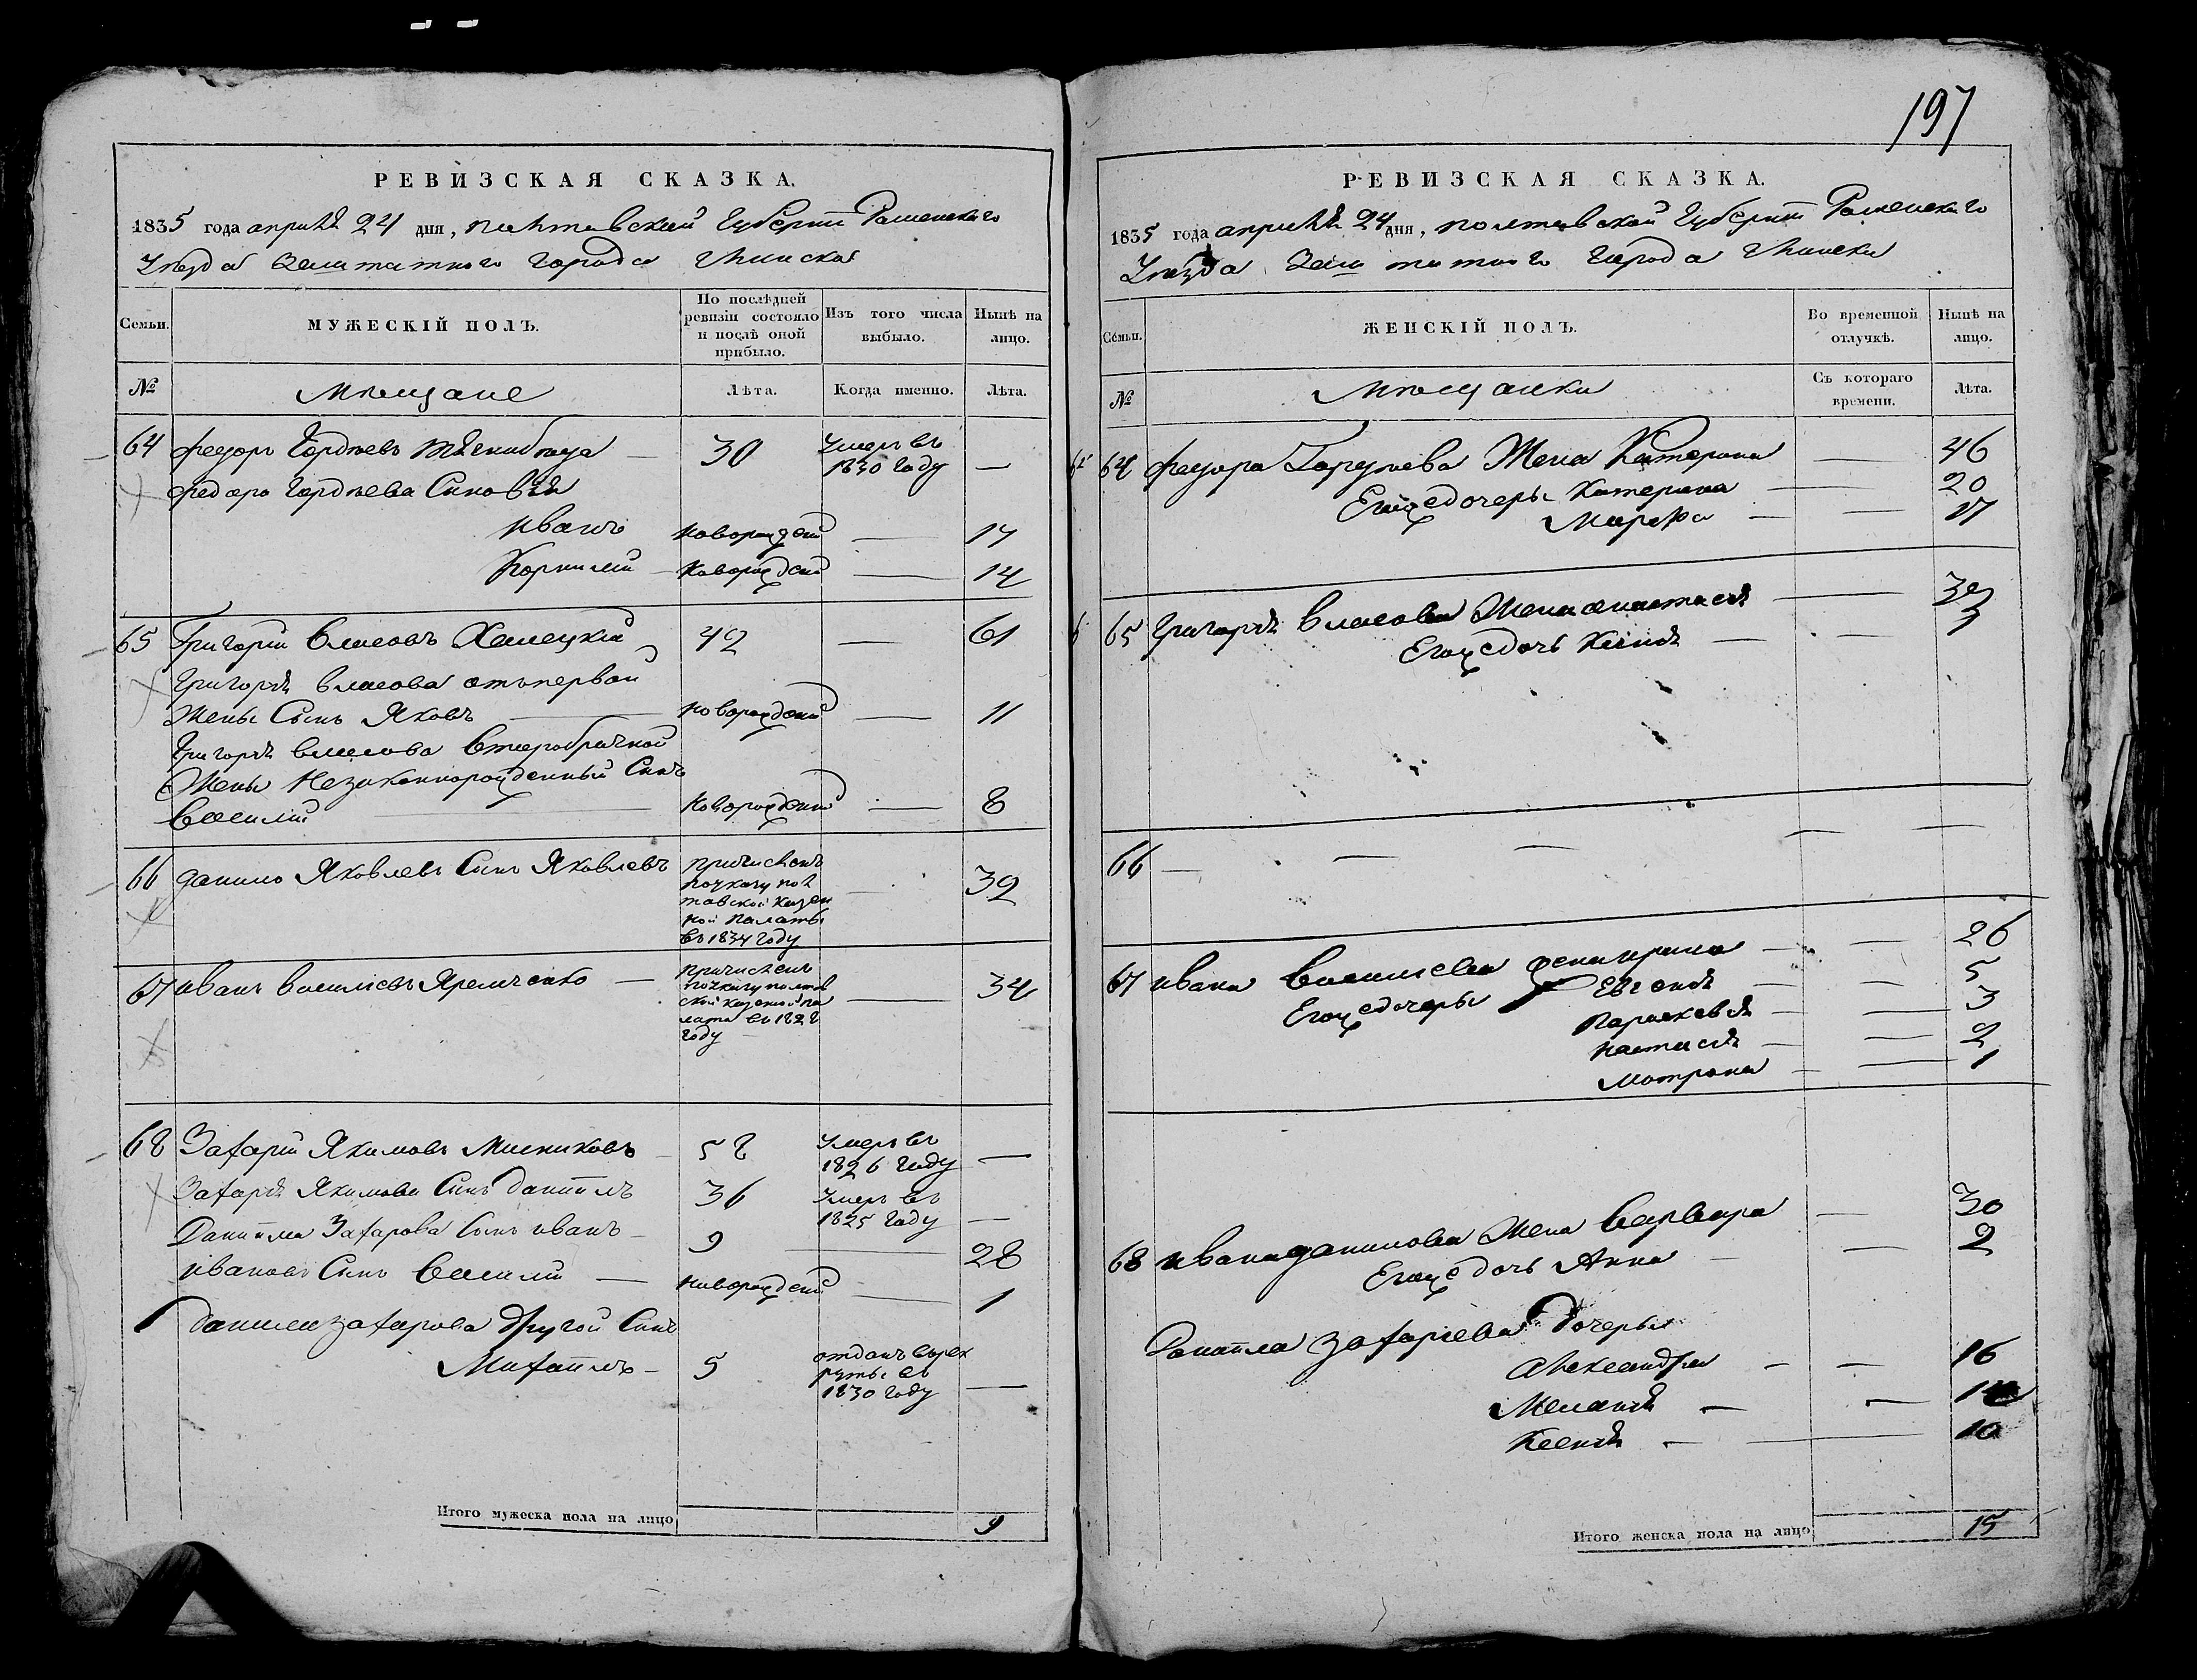 197
РЕВИЗСКАЯ СКАЗКА.
1835 года апрѣля 24 дня, полтавской Губерніи Роменского
Уезда Заштатного города Глинска
Семьи.
МУЖЕСКІЙ ПОЛЪ.
По послѣдней ревизіи состояло и послѣ оной прибыло.
Изъ того числа выбыло.
Нынѣ на лицо.
№
мѣщане
Лѣта.
Когда именно.
Лѣта.
64 федоръ Гордѣевъ 30 Умеръ въ 1830 году —
федора Гордѣева Сыновья
иванъ новорожденій — 17
Корнилій новорожденій — 14
65 Григорій Власовъ Халецкій 42 — 61
Григорія власова отъ первой
Жены Сынъ Яковъ новорожденій — 11
Григорія власова Второбрачной
Жены Незаконнорожденный Сынъ
Василий новорожденій — 8
66 данило Яковлевъ Сынъ Яковлевъ
причисленъ
поуказу пол
тавской казен
ной палаты
въ 1834 году
— 32
67 иванъ василіевъ Яремченко —
причисленъ
поуказу полтав
ской казеной па
латы въ 1828
году
— 34
68 Захарій Якимовъ Мисниковъ 58 Умеръ въ 1826 году —
Захарія Якимова Сынъ даниилъ 36 Умеръ въ 1825 году —
Даниила Захарова Сынъ иванъ 9 — 28
ивановъ Сынъ Василий — новорожденій — 1
даниила захарова другой Сынъ
Михаилъ 5 отданъ върек
руты въ
1830 году —
Итого мужеска пола на лицо 9
РЕВИЗСКАЯ СКАЗКА.
1835 года апрѣля 24 дня, полтавской Губерніи Роменского
Уезда Заштатного города Глинска
Семьи.
ЖЕНСКІЙ ПОЛЪ.
Во временной отлучкѣ.
Нынѣ на лицо.
№
мѣщанки
Съ котораго времени.
Лѣта.
64 федора Гордѣева Жена Катерина — 46
Егожъ дочеры Катерина — 20
Марфа — 17
65 Григорія Власова Жена анастасія —
Егожъ дочь Ксенія — 3
66 — — —
67 ивана Василиева жена ирина — 26
Егожъ дочеры Евгенія — 5
Параскевія — 3
настасія — 2
Мотрона — 1
68 ивана данилова Жена Варвара — 30
Егожъ дочь Анна — 2
Даниила Захаріева дочеры
александра — 16
Меланія —
Ксенія — 10
Итого женска пола на лицо 15